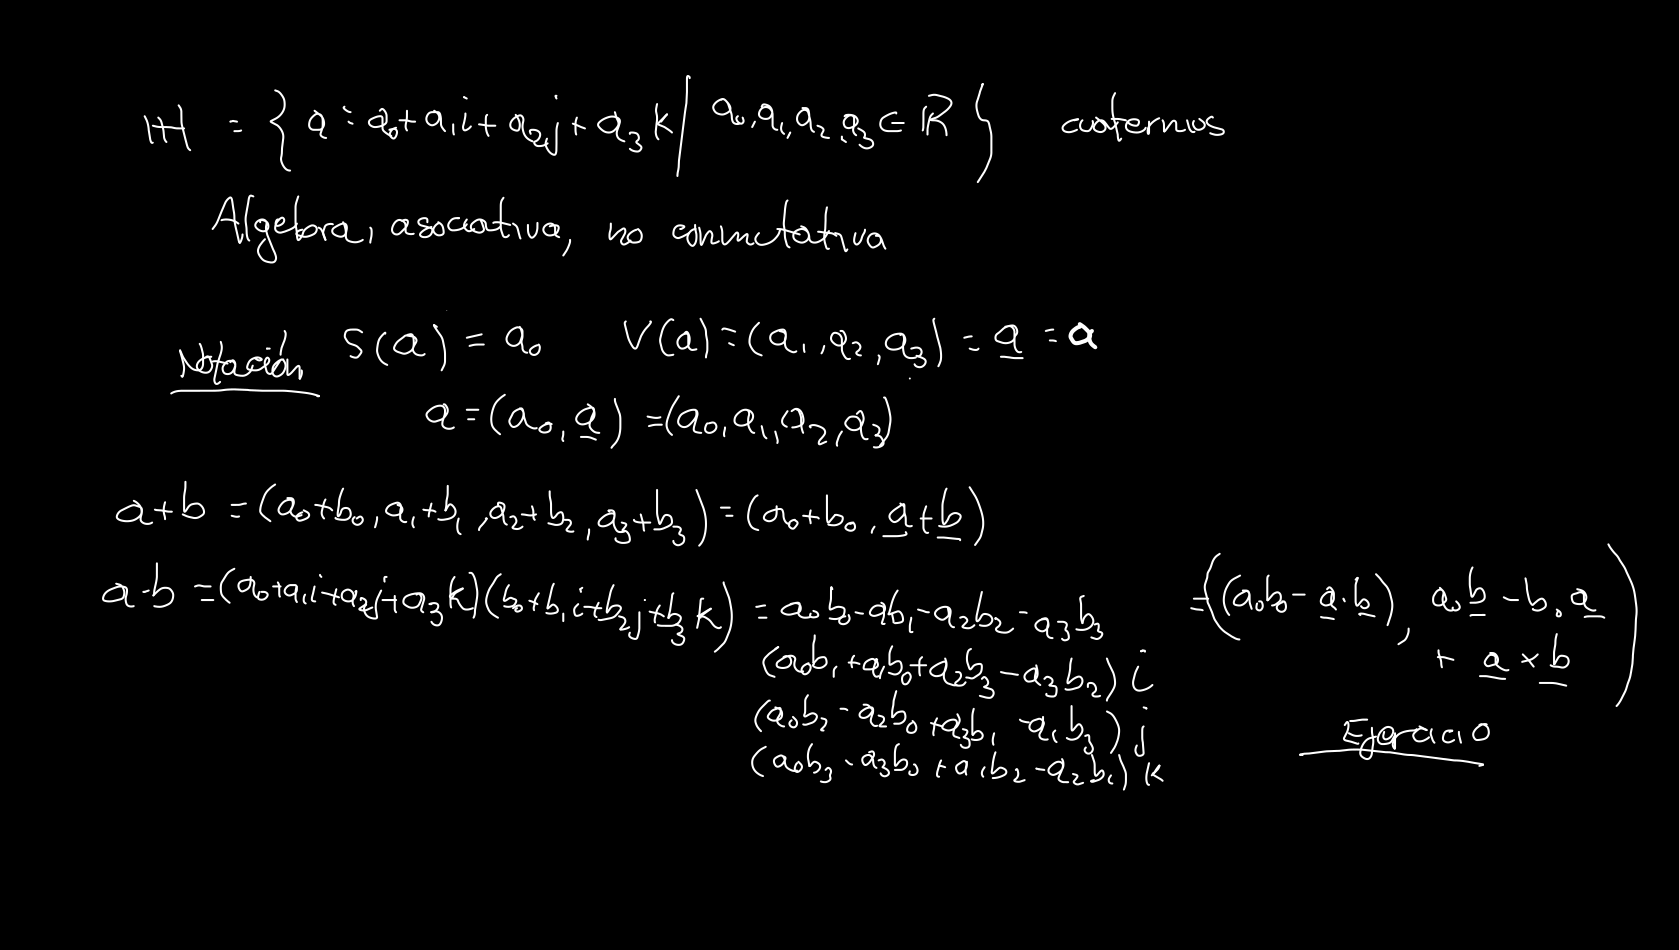 ℍ = { a = a₀+a₁i+a₂j+a₃k | a₀,a₁,a₂,a₃ ∈ ℝ } cuaternios
Álgebra, asociativa, no conmutativa
Notación S(a) = a₀ V(a) = (a₁,a₂,a₃) = a̲ = 𝐚
a = (a₀, a̲) = (a₀,a₁,a₂,a₃)
a+b = (a₀+b₀, a₁+b₁, a₂+b₂, a₃+b₃) = (a₀+b₀, a̲+b̲)
a·b = (a₀+a₁i+a₂j+a₃k)(b₀+b₁i+b₂j+b₃k) = a₀b₀-a₁b₁-a₂b₂-a₃b₃ = ((a₀b₀- a̲·b̲), a₀b̲ - b₀a̲
(a₀b₁+a₁b₀+a₂b₃-a₃b₂) i + a̲×b̲)
(a₀b₂-a₂b₀+a₃b₁-a₁b₃) j Ejercicio
(a₀b₃-a₃b₀+a₁b₂-a₂b₁) k